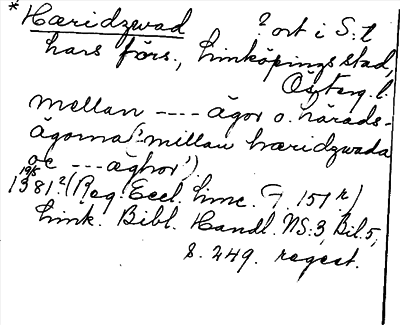 *Hæridzwad ? ort i S:t
Lars förs., Linköpings stad,
Österg. l.
mellan ---- ägor o. härads-
ägorna ('millan hæridzwada
oc --- æghor')
1381 19/8 2 (Reg. Eccl. Linc. 7 151 r)
Link. Bibl. Handl. NS:3, Bil. 5,
s. 249. regest.